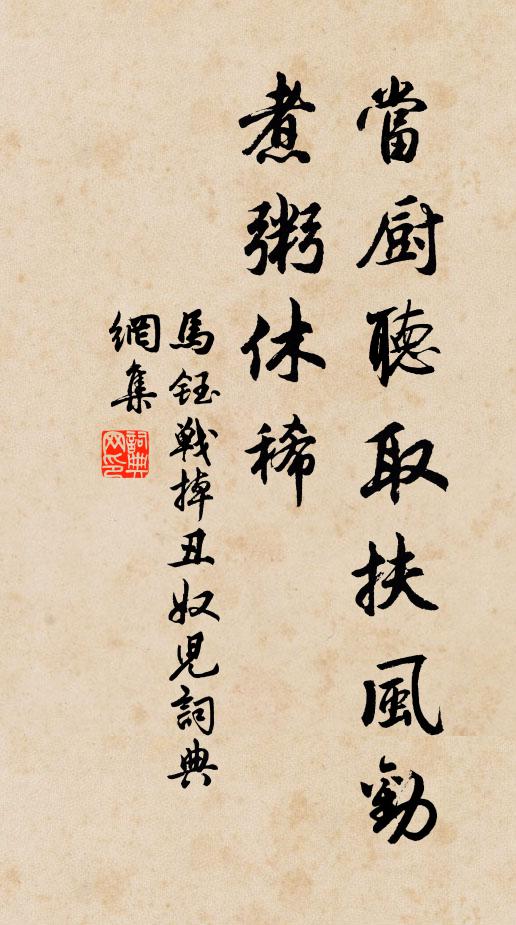 當厨聽取扶風勸
煮粥休稀
馬鈺戰掉丑奴兒詞典
網集
詞典
网印